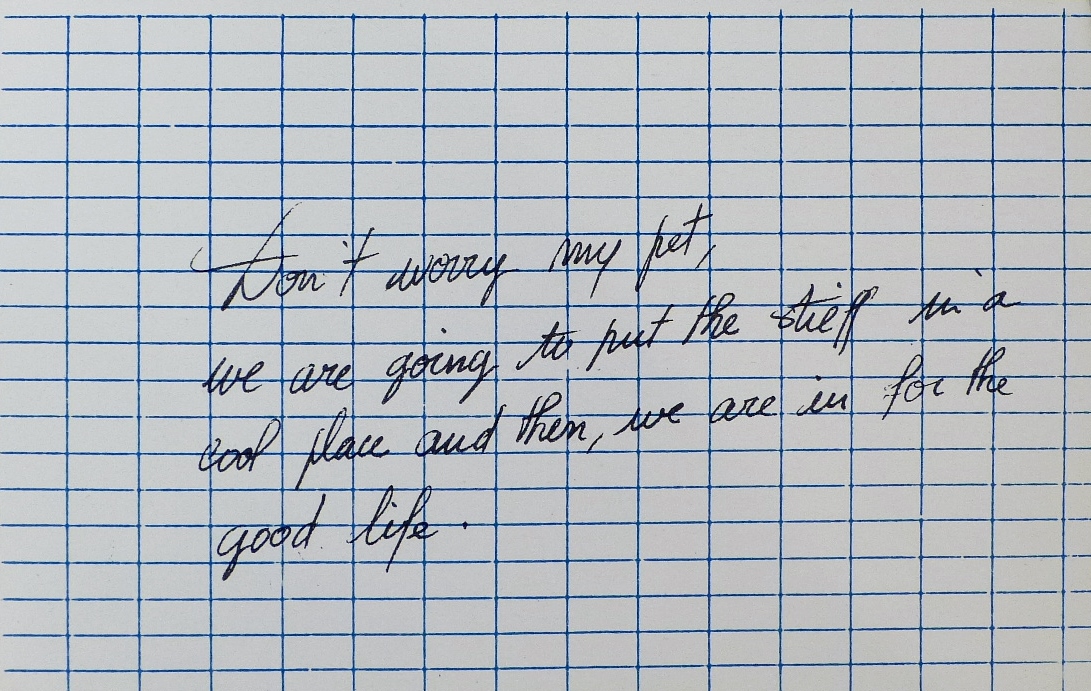 Don't worry my pet,
we are going to put the stieff in a
cool place and then, we are in for the
good life.